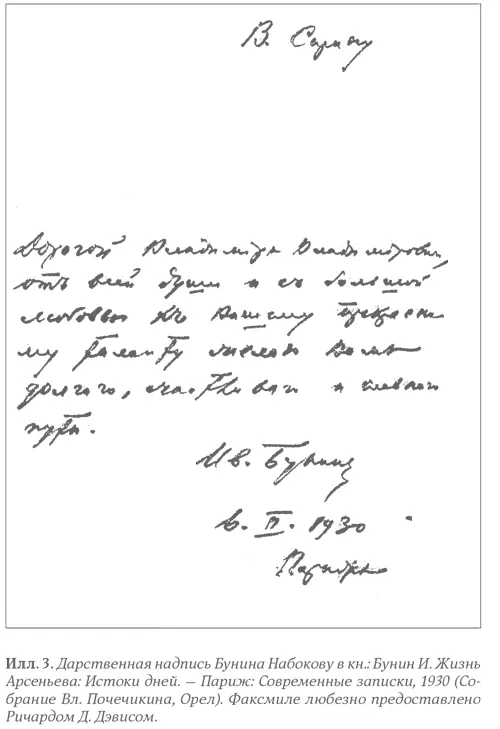 В. Сирину
Дорогой Владимиръ Владимировичъ,
отъ всей души и съ большой
любовью къ Вашему прекрасно
му таланту желаю Вамъ
долгаго, счастливаго и славнаго
пути.
Ив. Бунинъ
6. II. 1930
Парижъ
Илл. 3. Дарственная надпись Бунина Набокову в кн.: Бунин И. Жизнь
Арсеньева: Истоки дней. — Париж: Современные записки, 1930 (Со-
брание Вл. Почечикина, Орел). Факсмиле любезно предоставлено
Ричардом Д. Дэвисом.